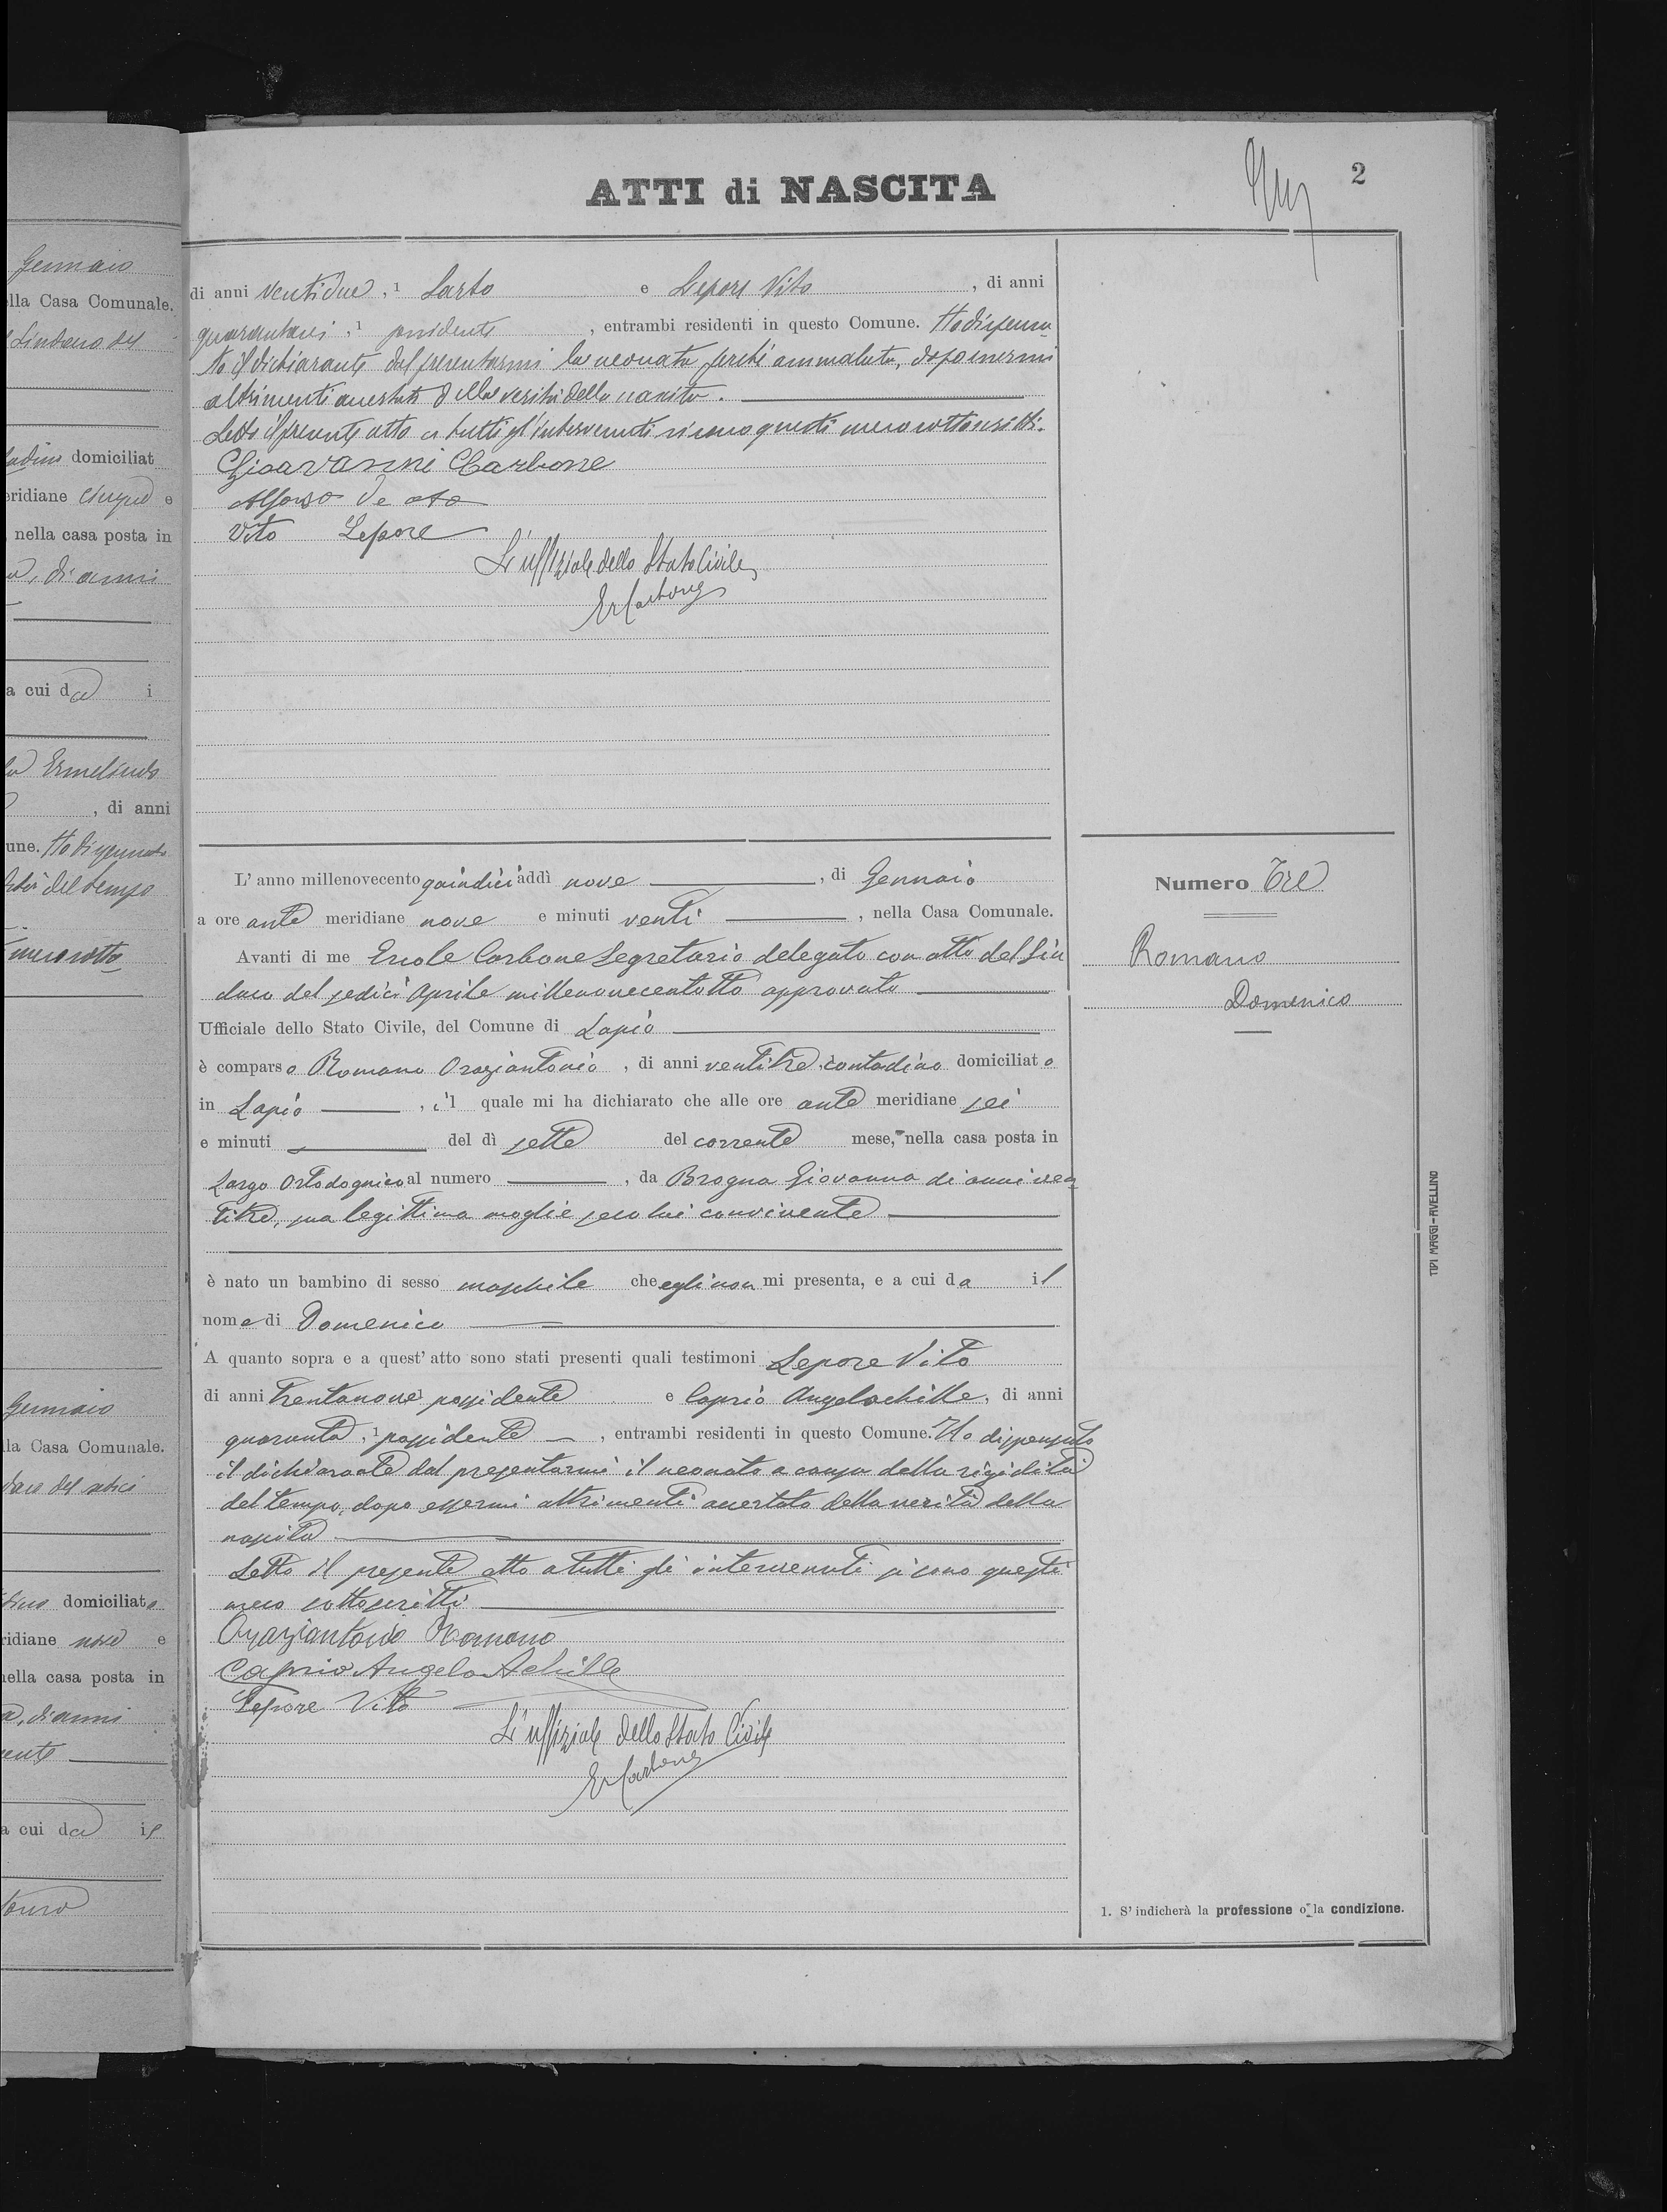 ATTI di NASCITA
2
di anni ventidue, 1 Sarto e Lepore Vito, di anni
quarantasei, 1 possidente, entrambi residenti in questo Comune. Ho dispensa
to il dichiarante dal presentarmi la neonata perchè ammalata, dopo essermi
altrimenti accertato della verità della nascita.
Letto il presente atto a tutti gl'intervenuti si sono questi meco sottoscritti.
Gioavanni Carbone
Alfonso De
Vito Lepore
L'uffiziale dello Stato Civile
ErCarbone
L'anno millenovecento quindici addì nove, di Gennaio
a ore ante meridiane nove e minuti venti, nella Casa Comunale.
Avanti di me Ercole Carbone Segretario delegato con atto del Sin
daco del sedici Aprile millenovecentotto approvato
Ufficiale dello Stato Civile, del Comune di Lapio
è comparso Romano Oraziantonio, di anni ventitre, contadino domiciliato
in Lapio, il quale mi ha dichiarato che alle ore ante meridiane sei
e minuti del dì sette del corrente mese, nella casa posta in
Largo Ortodognico al numero, da Brogna Giovanna di anni ven
titre, sua legittima moglie seco lui convivente
è nato un bambino di sesso maschile che egli non mi presenta, e a cui da il
nome di Domenico
A quanto sopra e a quest'atto sono stati presenti quali testimoni Lepore Vito
di anni trentanove possidente e Caprio Angelachille, di anni
quaranta, 1 possidente, entrambi residenti in questo Comune. Ho dispensato
il dichiarante dal presentarmi il neonato a causa della rigidità
del tempo, dopo essermi altrimenti accertato della verità della
nascita
Letto il presente atto a tutti gli intervenuti si sono questi
meco sottoscritti
Oraziantonio Romano
Caprio Angelo Achille
Lepore Vito
L'uffiziale dello Stato Civile
ErCarbone
Numero Tre
Romano
Domenico
1. S'indicherà la professione o la condizione.
TIPI MAGGI-AVELLINO
Gennaio
lla Casa Comunale.
Sindaco del
domiciliat
eridiane cinque e
nella casa posta in
di anni
a cui da i
Ermelindo
, di anni
une. Ho dispensato
del tempo
meco sotto
Gennaio
lla Casa Comunale.
daco del sedici
domiciliato
ridiane nove e
nella casa posta in
a, di anni
vente
a cui da il